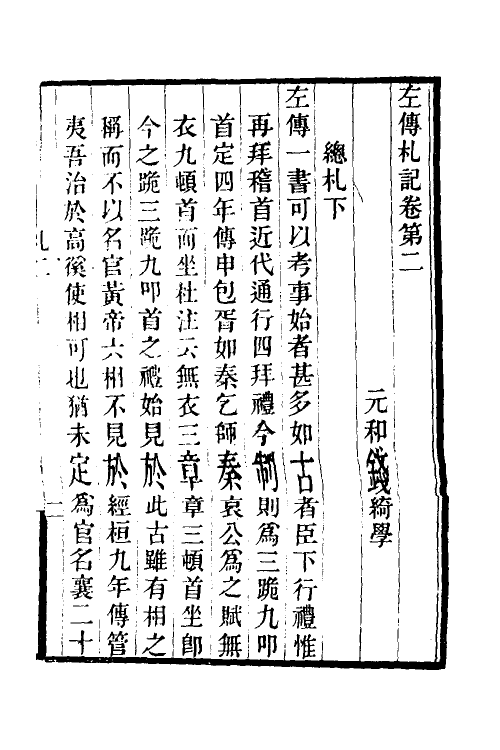 左傳札記卷第二
元和錢綺學
總札下
左傳一書可以考事始者甚多如古者臣下行禮惟
再拜稽首近代通行四拜禮今制則爲三跪九叩
首定四年傳申包胥如秦乞師秦哀公爲之賦無
衣九頓首而坐杜注云無衣三章章三頓首坐卽
今之跪三跪九叩首之禮始見於此古雖有相之
稱而不以名官黃帝六相不見於經桓九年傳管
夷吾治於高傒使相可也猶未定爲官名襄二十
札二
一